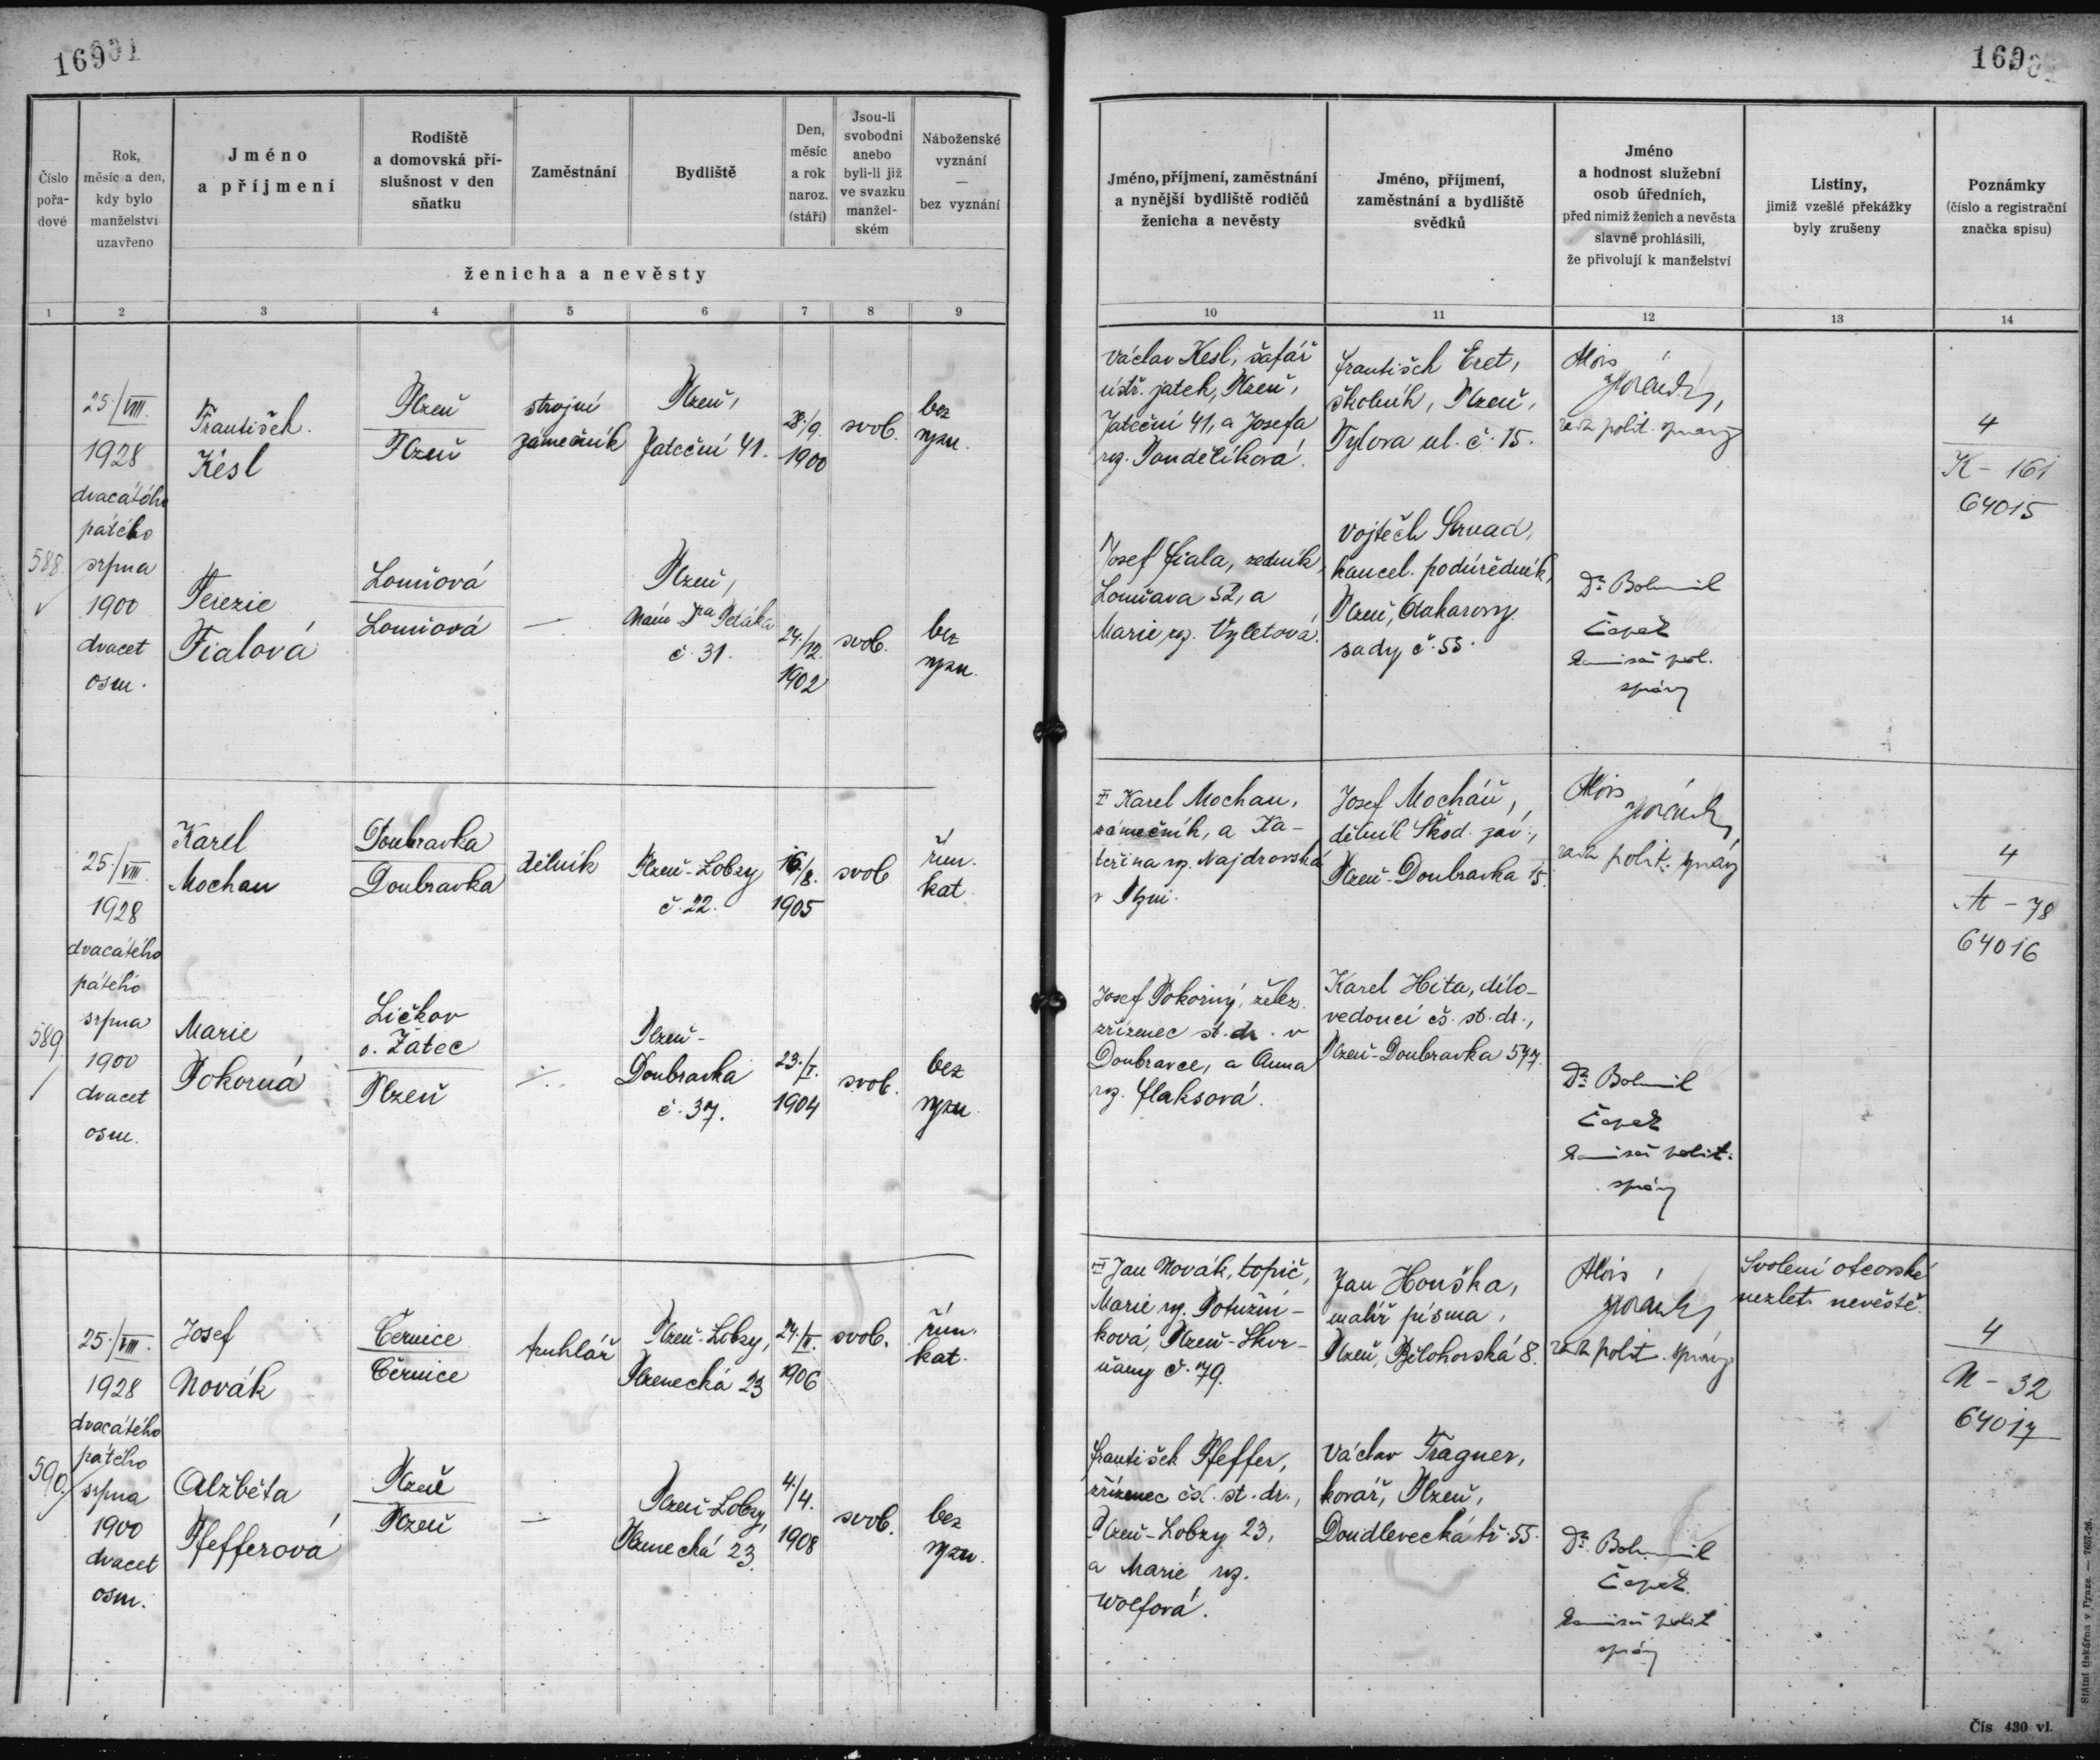 169
169
Číslo
pořa-
dové
Rok,
měsíc a den,
kdy bylo
manželství
uzavřeno
Jméno
a příjmení
Rodiště
a domovská pří-
slušnost v den
sňatku
Zaměstnání
Bydliště
Den,
měsíc
a rok
naroz.
(stáří)
Jsou-li
svobodni
anebo
byli-li již
ve svazku
manžel-
ském
Náboženské
vyznání
—
bez vyznání
ženicha a nevěsty
Jméno, příjmení, zaměstnání
a nynější bydliště rodičů
ženicha a nevěsty
Jméno, příjmení,
zaměstnání a bydliště
svědků
Jméno
a hodnost služební
osob úředních,
před nimiž ženich a nevěsta
slavně prohlásili,
že přivolují k manželství
Listiny,
jimiž vzešlé překážky
byly zrušeny
Poznámky
(číslo a registrační
značka spisu)
1 2 3 4 5 6 7 8 9 10 11 12 13 14
588.
25./VIII.
1928
dvacátého
pátého
srpna
1900
dvacet
osm.
František
Kesl
Plzeň
Plzeň
strojní
zámečník
Plzeň,
Jateční 41.
28./9.
1900
svob.
bez
vyzn.
Václav Kesl, šafář
ústř. jatek, Plzeň,
Jateční 41, a Josefa
roz. Pondělíková.
František Eret,
školník, Plzeň,
Tylova ul. č. 15.
Alois
rada polit. správy
4
K - 161
64015
Terezie
Fialová
Lomčová
Lomčová
—
Plzeň,
Nám. Dra Petáka
č. 31.
24./12.
1902
svob.
bez
vyzn.
Josef Fiala, zedník,
Lomčava 52, a
Marie roz. Výletová.
Vojtěch Strnad,
kancel. podúředník,
Plzeň, Otakarovy
sady č. 55.
Dr. Bohumil
Čapek
komisař pol.
správy
589.
25./VIII.
1928
dvacátého
pátého
srpna
1900
dvacet
osm.
Karel
Mochan
Doubravka
Doubravka
dělník
Plzeň-Lobzy
č. 22.
16./8.
1905
svob
řím.
kat.
Karel Mochan,
zámečník, a Ka-
teřina roz. Najdrovská
v Plzni.
Josef Mocháň,
dělník Škod. záv.,
Plzeň-Doubravka 15.
Alois
rada polit. správy
4
M - 78
64016
Marie
Pokorná
Ličkov
o. Žatec
Plzeň
Plzeň-
Doubravka
č. 37.
23./I.
1904
svob.
bez
vyzn
Josef Pokorný, želez.
zřízenec st. dr. v
Doubravce, a Anna
roz. Flaksová.
Karel Hita, dílo-
vedoucí čs. st. dr.,
Plzeň-Doubravka 547.
Dr. Bohumil
Čapek
komisař polit.
správy
590.
25./VIII.
1928
dvacátého
pátého
srpna
1900
dvacet
osm.
Josef
Novák
Černice
Černice
truhlář
Plzeň-Lobzy,
Plzenecká 23
1906
svob.
řím.
kat.
Jan Novák, topič,
Marie roz. Potužní-
ková, Plzeň-Skvr-
ňany č. 79.
Jan Houška,
malíř písma,
Plzeň, Bělohorská 8.
Alois
rada polit. správy
Svolení otcovské
nezlet. nevěstě.
4
N - 32
64017
Alžběta
Pfefferová
Plzeň
Plzeň
—
Plzeň-Lobzy,
Plzenecká 23.
4./4.
1908
svob.
bez
vyzn.
František Pfeffer,
zřízenec čsl. st. dr.,
Plzeň-Lobzy 23,
a Marie roz.
Wolfová.
Václav Tragner,
kovář, Plzeň,
Doudlevecká tř. 55.
Dr. Bohumil
Čapek
komisař polit
správy
Státní tiskárna v Praze. — 7657-26.
Čís. 430 vl.